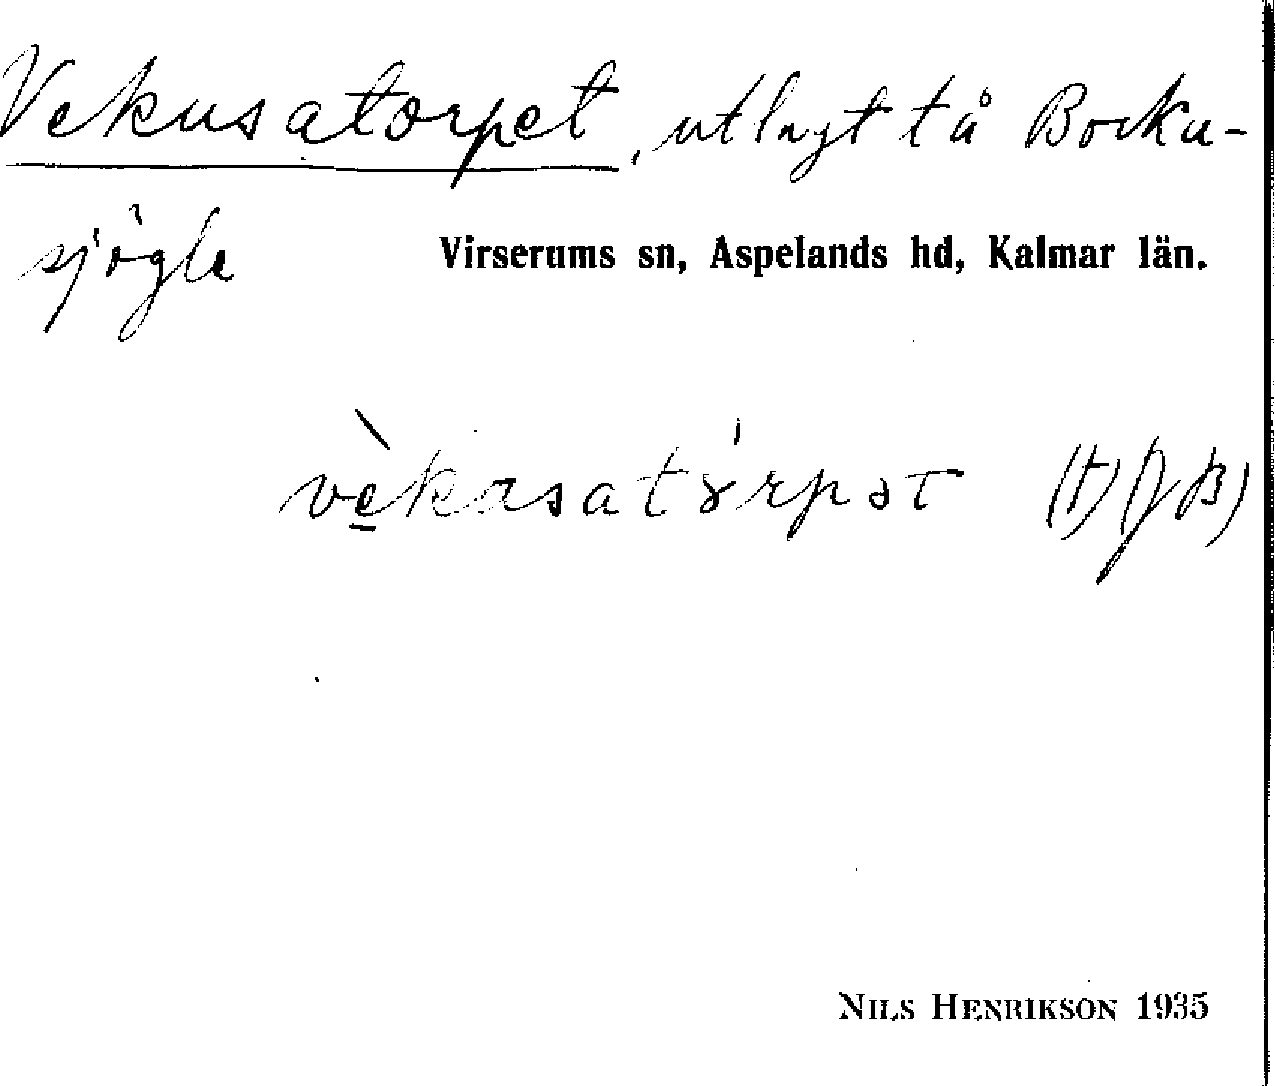 Vekusatorpet, utlagt tå Bocka-
sjögle
Virserums sn, Aspelands hd, Kalmar län.
vè̱kasatɤ́rpət (H) (JB)
NILS HENRIKSON 1935